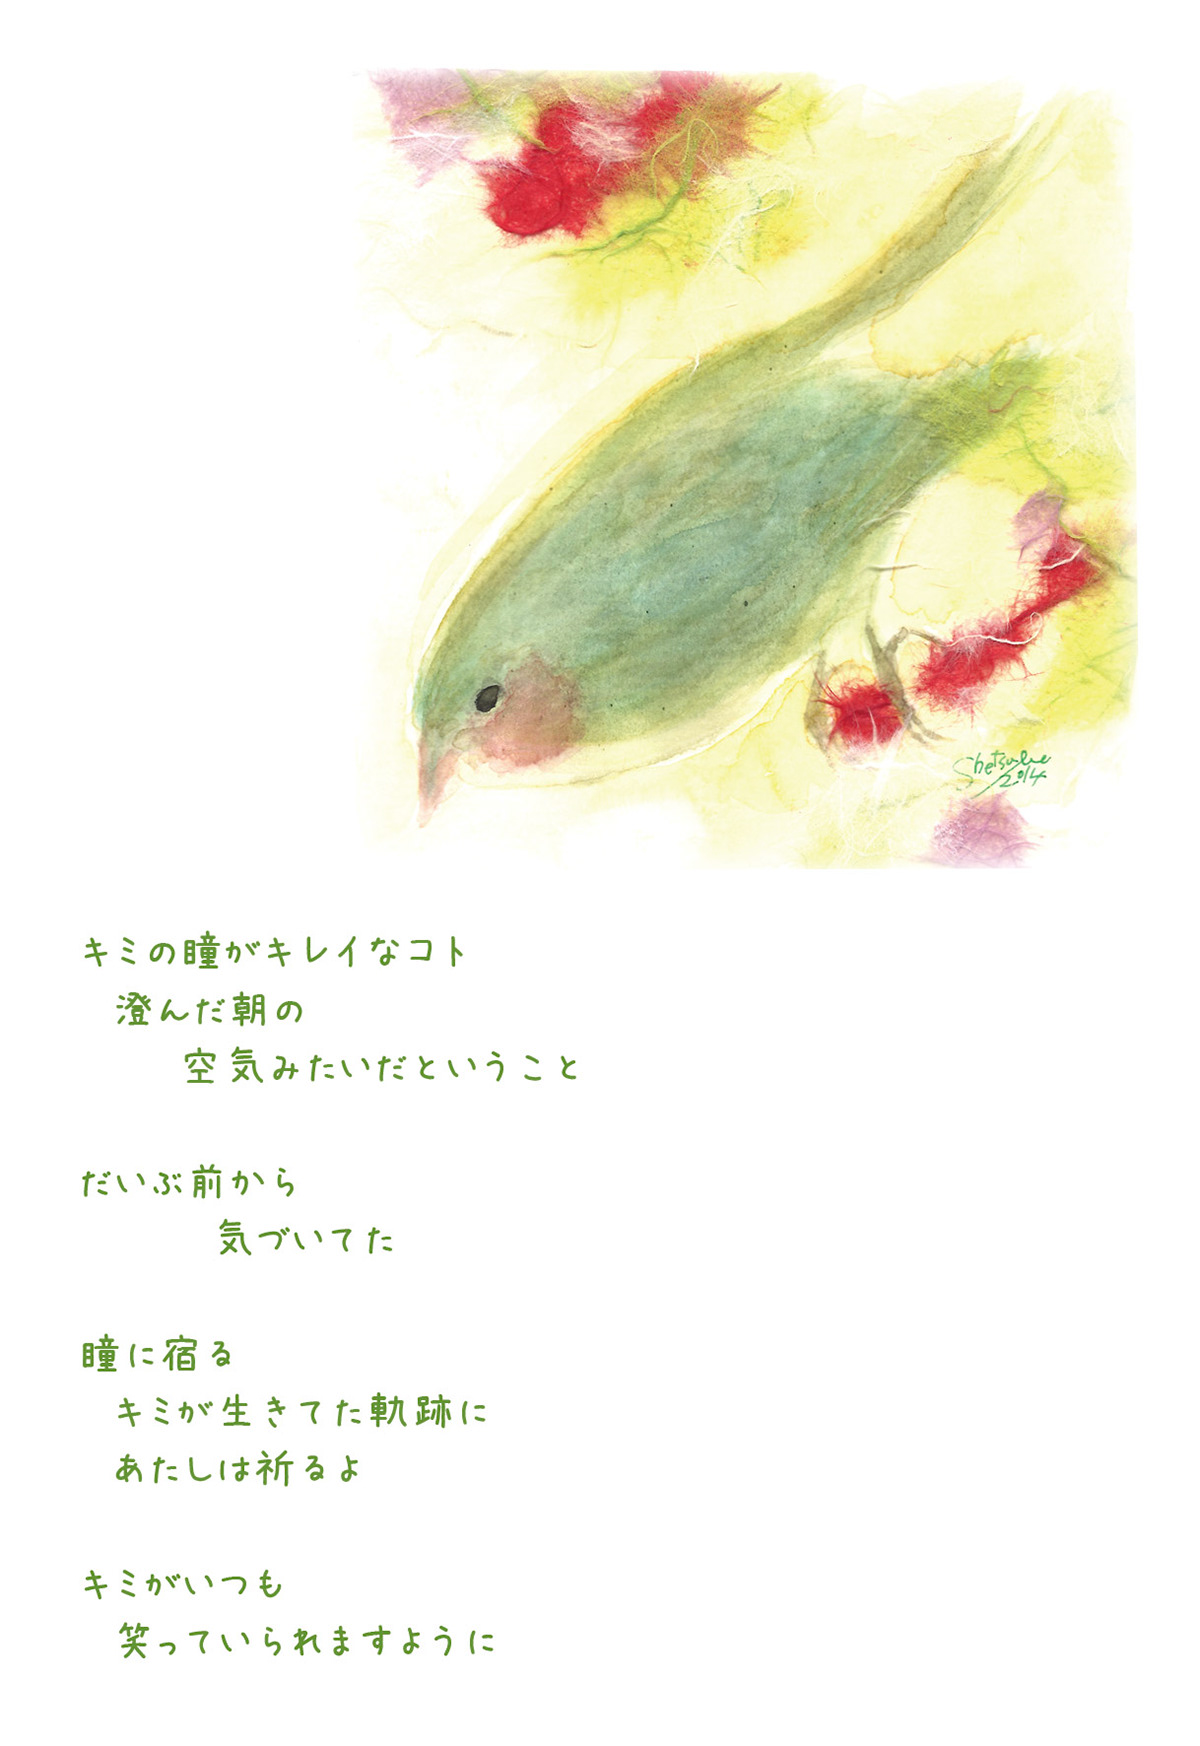 2014
キミの瞳がキレイなコト
澄んだ朝の
空気みたいだということ
だいぶ前から
気づいてた
瞳に宿る
キミが生きてた軌跡に
あたしは祈るよ
キミがいつも
笑っていられますように